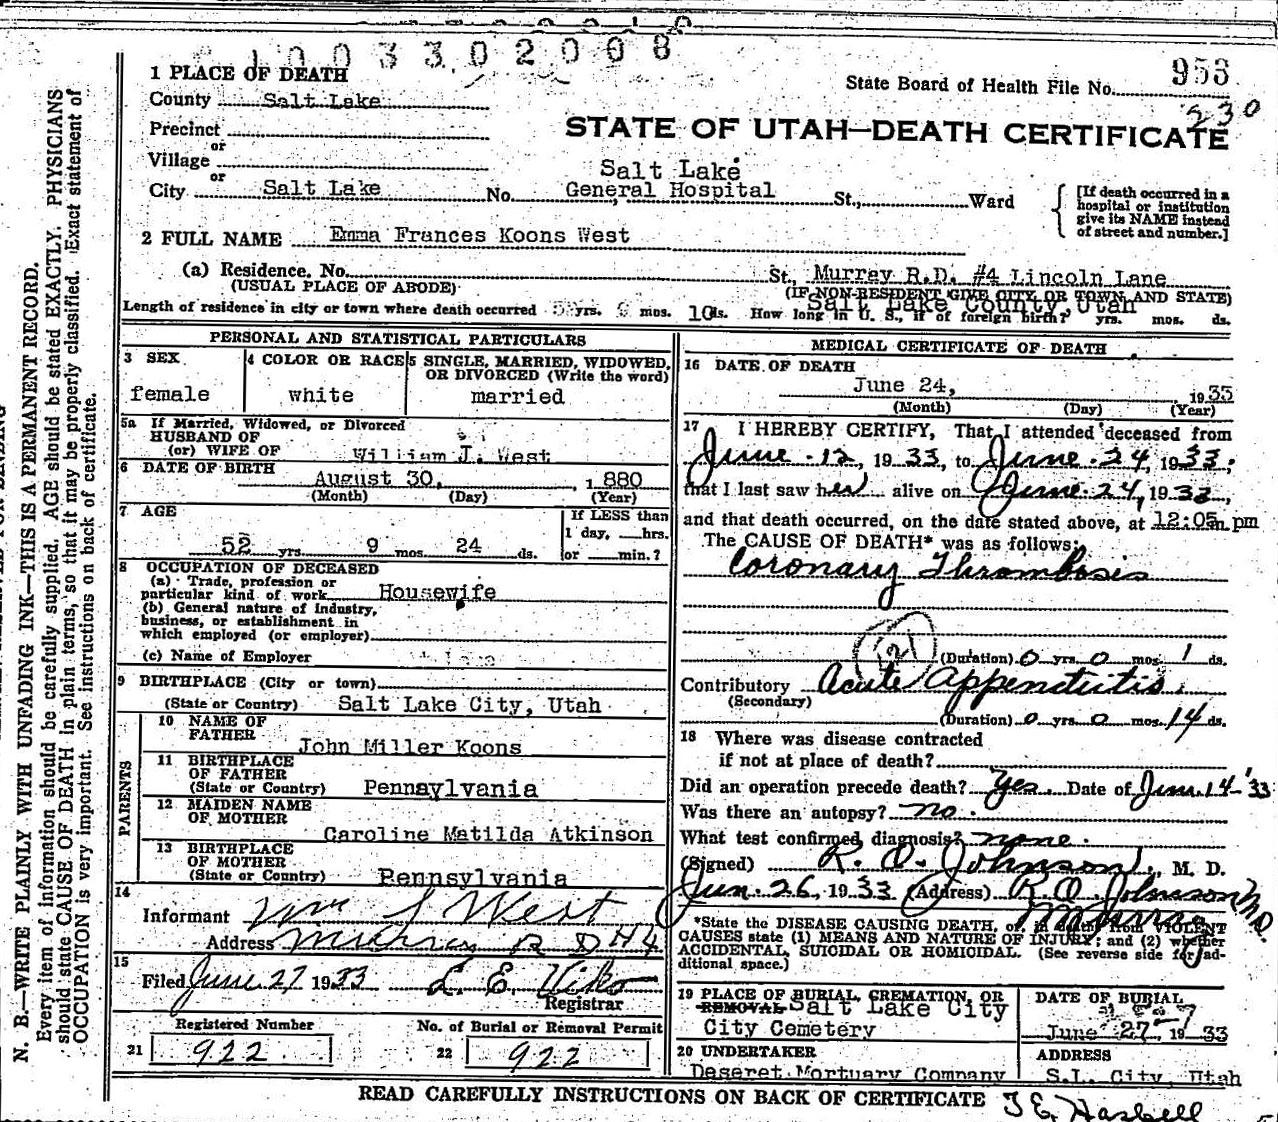 1003302008
1 PLACE OF DEATH
State Board of Health File No. 953
230
County Salt Lake
STATE OF UTAH—DEATH CERTIFICATE
Precinct
or
Village
or
Salt Lake
City Salt Lake No. General Hospital St., Ward
[If death occurred in a
hospital or institution
give its NAME instead
of street and number.]
2 FULL NAME Emma Frances Koons West
(a) Residence. No. St., Murray R.D. #4 Lincoln Lane
(USUAL PLACE OF ABODE) (IF NON-RESIDENT GIVE CITY OR TOWN AND STATE)
Salt Lake County, Utah
Length of residence in city or town where death occurred yrs. mos. 10 ds. How long in U. S., if of foreign birth? yrs. mos. ds.
PERSONAL AND STATISTICAL PARTICULARS
3 SEX
female
4 COLOR OR RACE
white
5 SINGLE, MARRIED, WIDOWED,
OR DIVORCED (Write the word)
married
5a If Married, Widowed, or Divorced
HUSBAND OF
(or) WIFE OF William J. West
6 DATE OF BIRTH
August 30, 1880
(Month) (Day) (Year)
7 AGE
52 yrs. 9 mos. 24 ds.
If LESS than
1 day, hrs.
or min.?
8 OCCUPATION OF DECEASED
(a) Trade, profession or
particular kind of work Housewife
(b) General nature of industry,
business, or establishment in
which employed (or employer)
(c) Name of Employer
9 BIRTHPLACE (City or town)
(State or Country) Salt Lake City, Utah
PARENTS
10 NAME OF
FATHER
John Miller Koons
11 BIRTHPLACE
OF FATHER
(State or Country) Pennsylvania
12 MAIDEN NAME
OF MOTHER
Caroline Matilda Atkinson
13 BIRTHPLACE
OF MOTHER
(State or Country) Pennsylvania
14
Informant Wm J West
Address Murray R D #4
15
Filed June 27 1933 L. E. Viko
Registrar
Registered Number
21 922
No. of Burial or Removal Permit
22 922
MEDICAL CERTIFICATE OF DEATH
16 DATE OF DEATH
June 24, 1933
(Month) (Day) (Year)
17 I HEREBY CERTIFY, That I attended deceased from
June 12, 1933, to June 24, 1933,
that I last saw her alive on June 24, 1933,
and that death occurred, on the date stated above, at 12:05 m. pm
The CAUSE OF DEATH* was as follows:
Coronary Thrombosis
(Duration) 0 yrs. 0 mos. 1 ds.
Contributory Acute Appendicitis
(Secondary)
(Duration) 0 yrs. 0 mos. 14 ds.
18 Where was disease contracted
if not at place of death?
Did an operation precede death? Yes. Date of Jun. 14-'33
Was there an autopsy? no.
What test confirmed diagnosis? none.
(Signed) R. O. Johnson, M. D.
Jun. 26, 1933 (Address) R.O. Johnson M.D.
Murray
*State the DISEASE CAUSING DEATH, or, in deaths from VIOLENT
CAUSES state (1) MEANS AND NATURE OF INJURY; and (2) whether
ACCIDENTAL, SUICIDAL OR HOMICIDAL. (See reverse side for ad-
ditional space.)
19 PLACE OF BURIAL, CREMATION, OR
REMOVAL Salt Lake City
City Cemetery
DATE OF BURIAL
June 27, 1933
20 UNDERTAKER
Deseret Mortuary Company
ADDRESS
S.L. City, Utah
READ CAREFULLY INSTRUCTIONS ON BACK OF CERTIFICATE
N. B.—WRITE PLAINLY WITH UNFADING INK—THIS IS A PERMANENT RECORD.
Every item of information should be carefully supplied. AGE should be stated EXACTLY. PHYSICIANS
should state CAUSE OF DEATH in plain terms, so that it may be properly classified. Exact statement of
OCCUPATION is very important. See instructions on back of certificate.